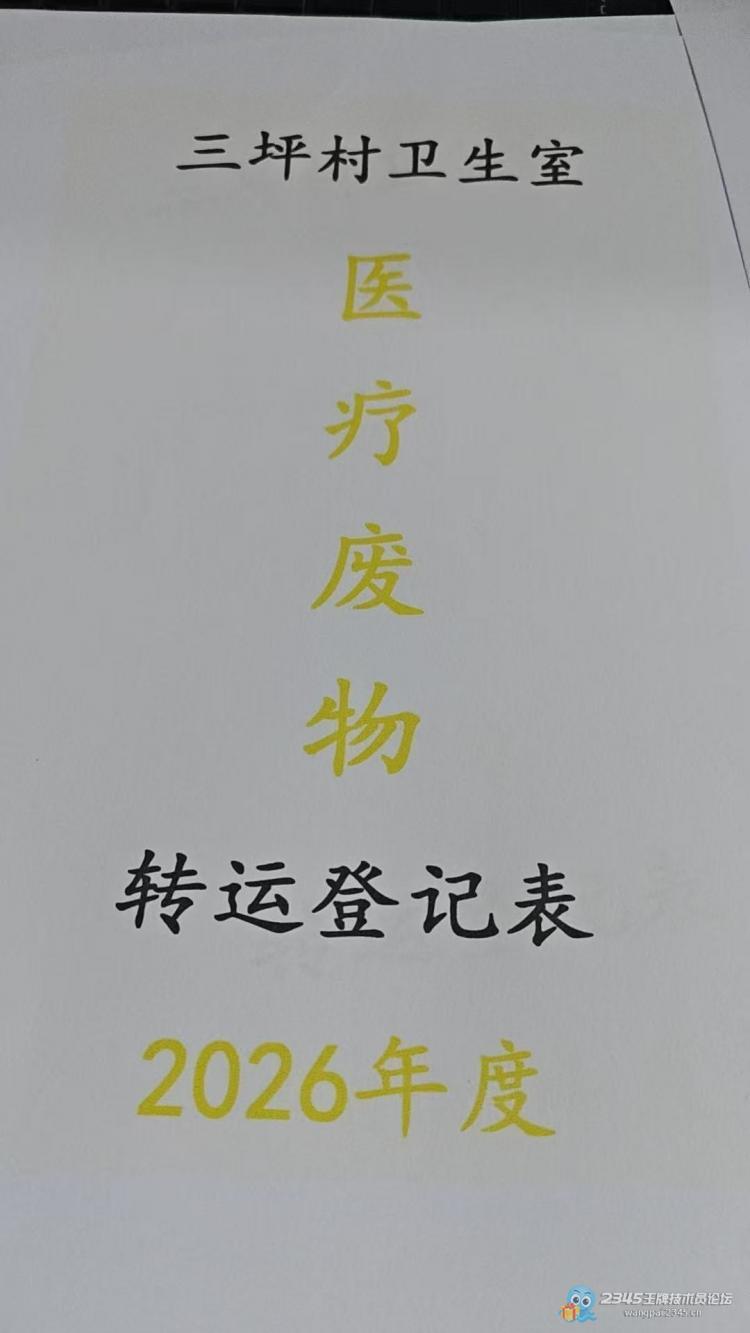 三坪村卫生室
医
疗
废
物
转运登记表
2026年度
2345王牌技术员论坛
wangpai2345.cn